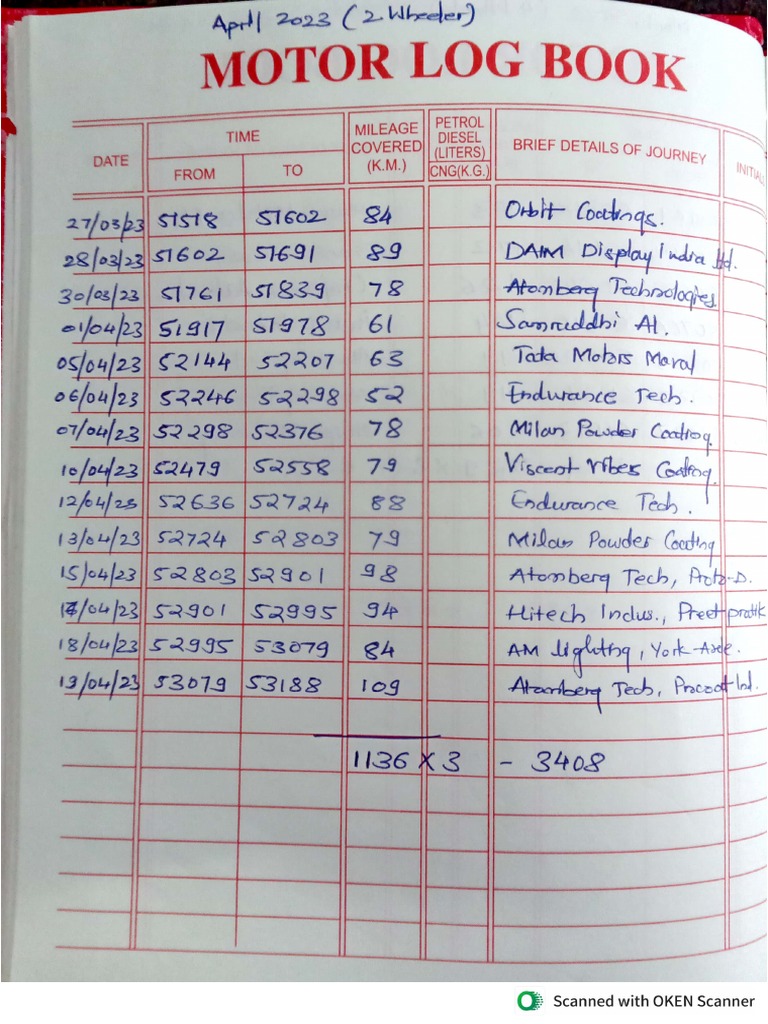 April 2023 (2 Wheeler)
MOTOR LOG BOOK
DATE TIME FROM TO MILEAGE COVERED (K.M.) PETROL DIESEL (LITERS) CNG(K.G.) BRIEF DETAILS OF JOURNEY INITIAL
27/03/23 51518 51602 84 Orbit Coatings.
28/03/23 51602 51691 89 DAIM Display India ltd.
30/03/23 51761 51839 78 Atomberg Technologies
01/04/23 51917 51978 61 Samruddhi Al.
05/04/23 52144 52207 63 Tata Motors Maval
06/04/23 52246 52298 52 Endurance Tech.
07/04/23 52298 52376 78 Milan Powder Coating.
10/04/23 52479 52558 79 Vibes Coating.
12/04/23 52636 52724 88 Endurance Tech.
13/04/23 52724 52803 79 Milan Powder Coating
15/04/23 52803 52901 98 Atomberg Tech,
17/04/23 52901 52995 94 Hitech Indus., Preet pratik
18/04/23 52995 53079 84 AM lighting, York-
19/04/23 53079 53188 109 Atomberg Tech, Ind.
1136 X 3 - 3408
Scanned with OKEN Scanner